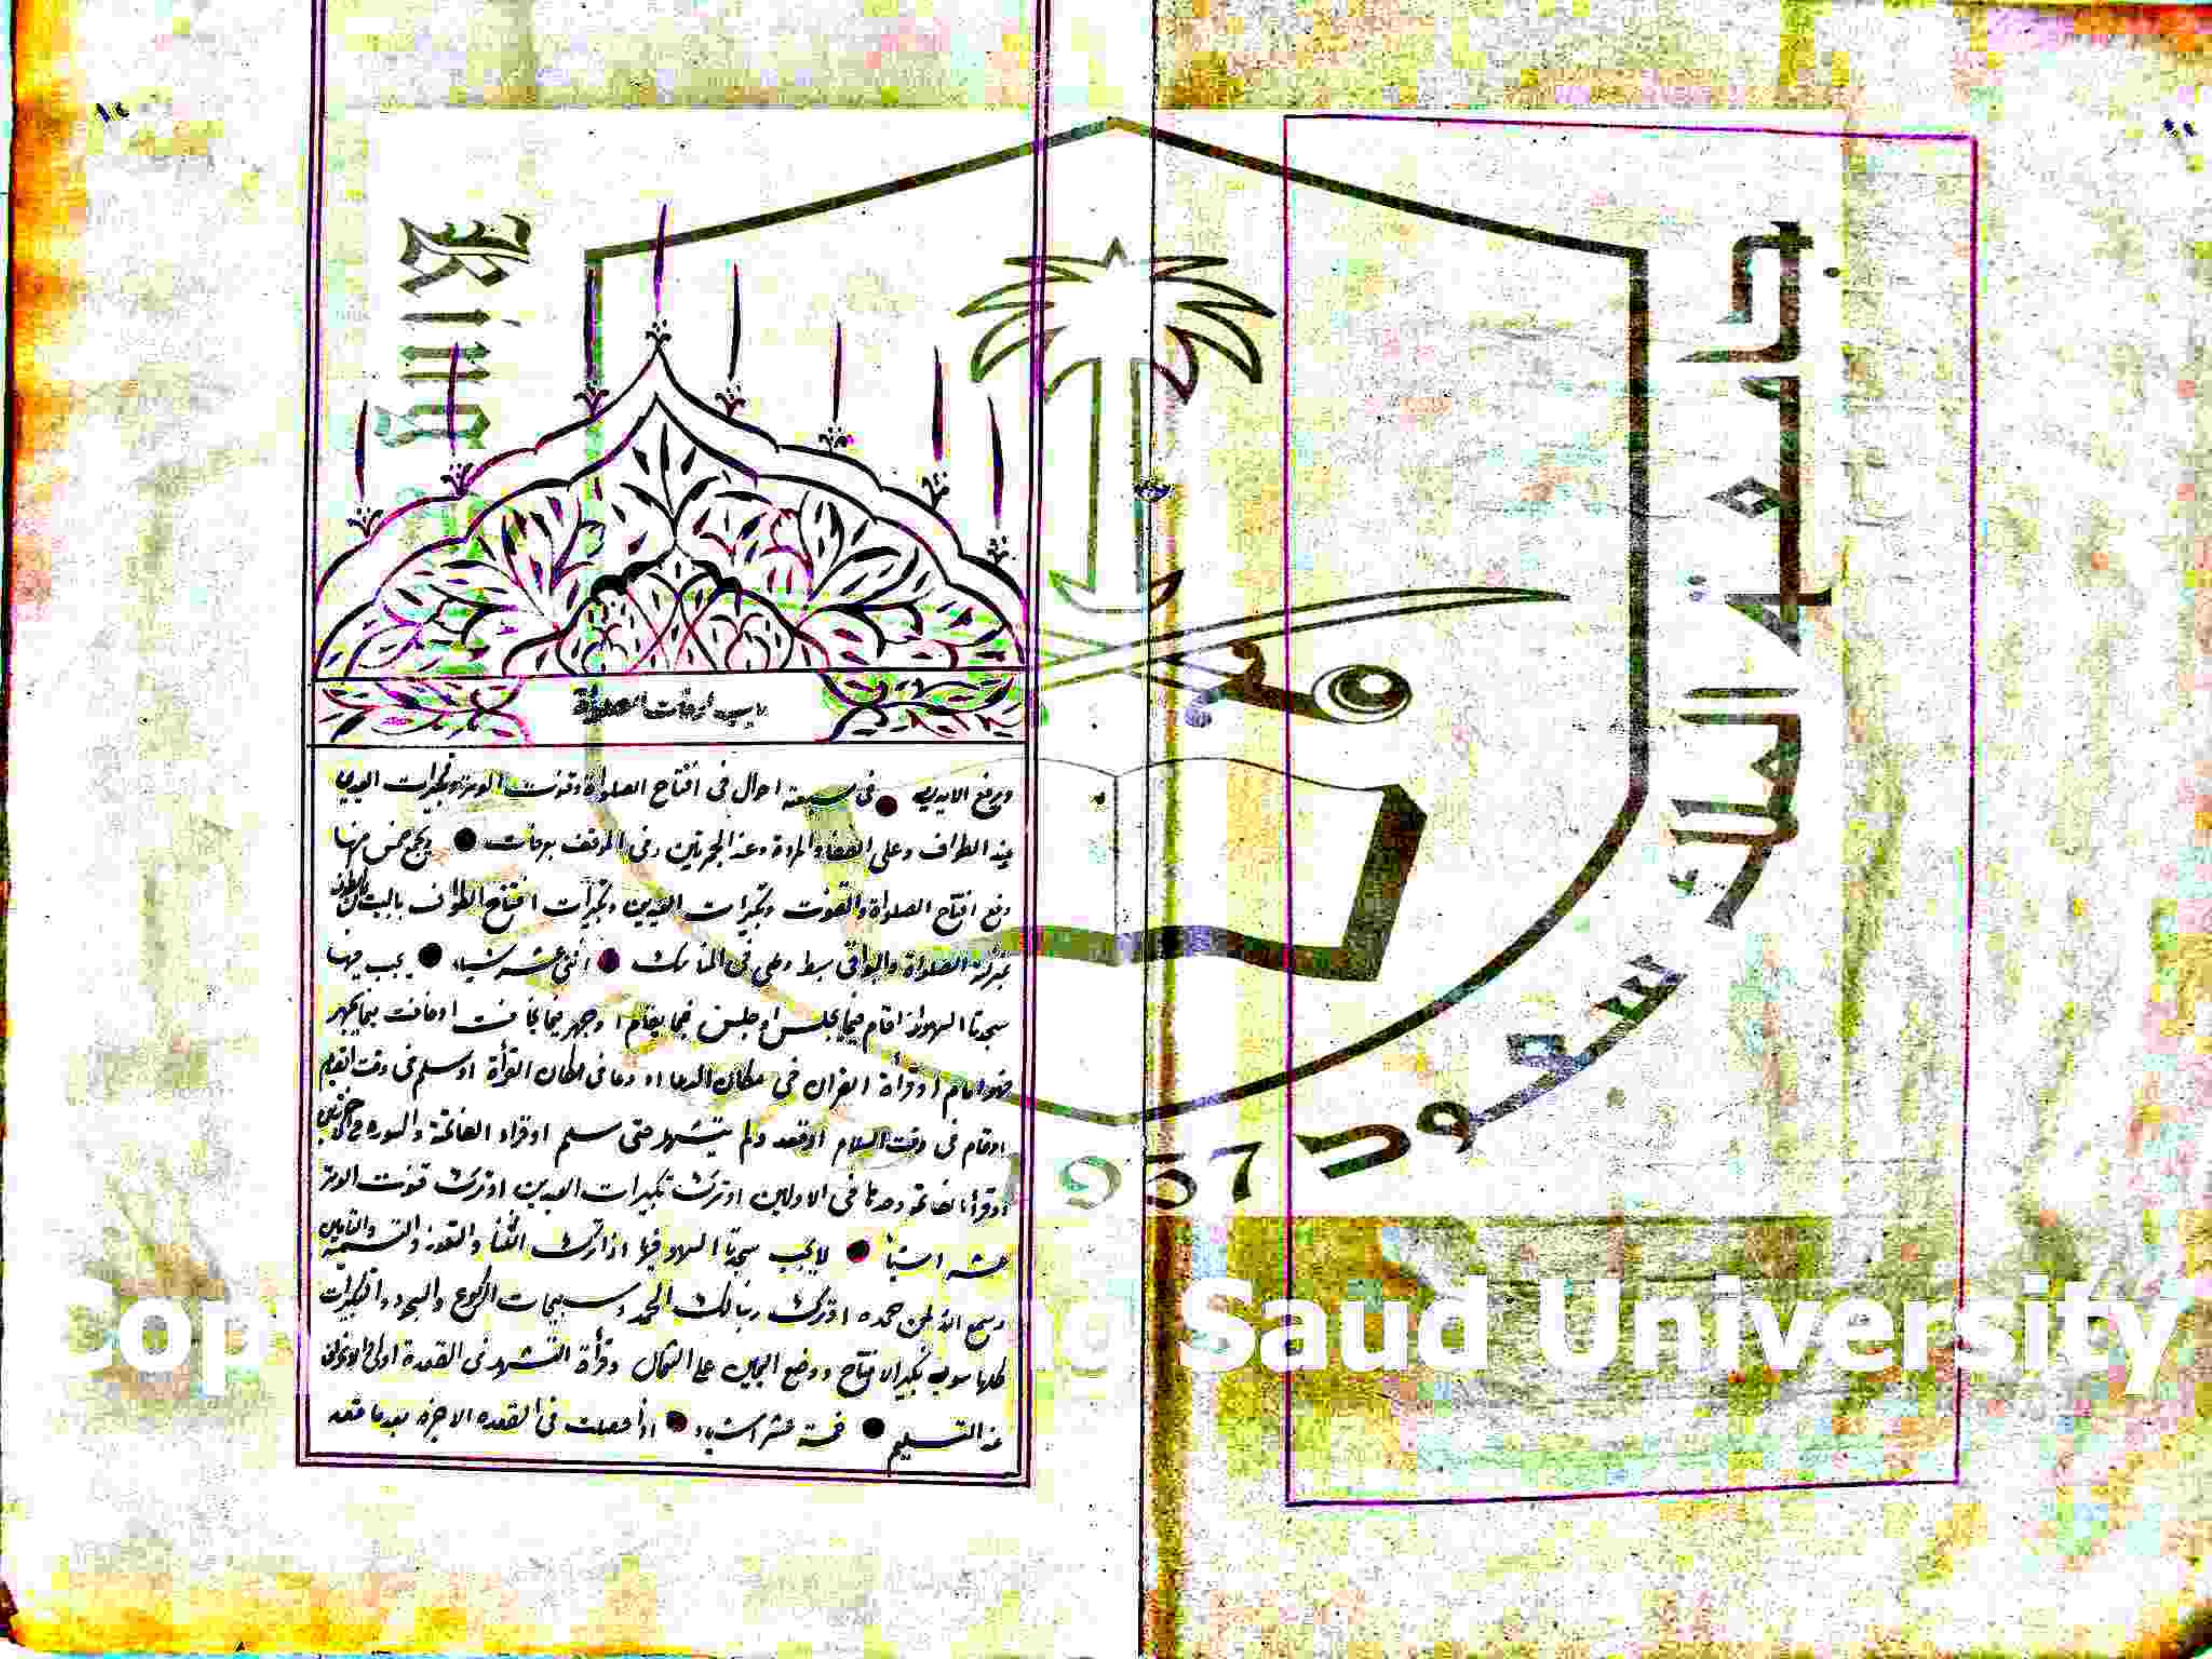 باب اوقات الصلواة
ويرفع الايدي ● فى سبعة احوال فى افتتاح الصلواة وقنوت الوتر وتكبيرات العيدين
عند الطواف وعلى الصفا والمروة وعند الجمرتين وفى الموقف بعرفات ● يجمع خمس منها
رفع افتتاح الصلواة والقنوت وتكبيرات العيدين وتكبيرات افتتاح الطواف بالبيت
بمنزلة الصلواة والبواقى بسط وهى فى المناسك ● اثنى عشر شياء ● يجب فيها
سجدتا السهو اذا قام فيما يجلس او جلس فيما يقام او جهر فيما يخافت او خافت فيما يجهر
وهو امام او قرأة القران فى مكان الدعا او دعا فى مكان القرأة او سلم فى وقت القيام
او قام فى وقت السلام او قعد ولم يتشهد حتى سلم او قراء الفاتحة والسورة فى
او قرأ الفاتحة وحدها فى الاولين او ترك تكبيرات العيدين او ترك قنوت الوتر
عشر اشيأ ● لا يجب سجدتا السهو فيها اذا ترك الثنأ والتعوذ والتسمية والتأمين
وسمع الله لمن حمده او ترك ربنا لك الحمد وتسبيحات الركوع والسجود والتكبيرات
كلها سوى تكبير الافتتاح ووضع اليمين على الشمال وقرأة التشهد فى القعدة اولى
عند التسليم ● خمسة عشر اشياء ● اذا فعلت فى القعده الاخره بعد ما قعد
جامعة الملك سعود
1957
Saud University